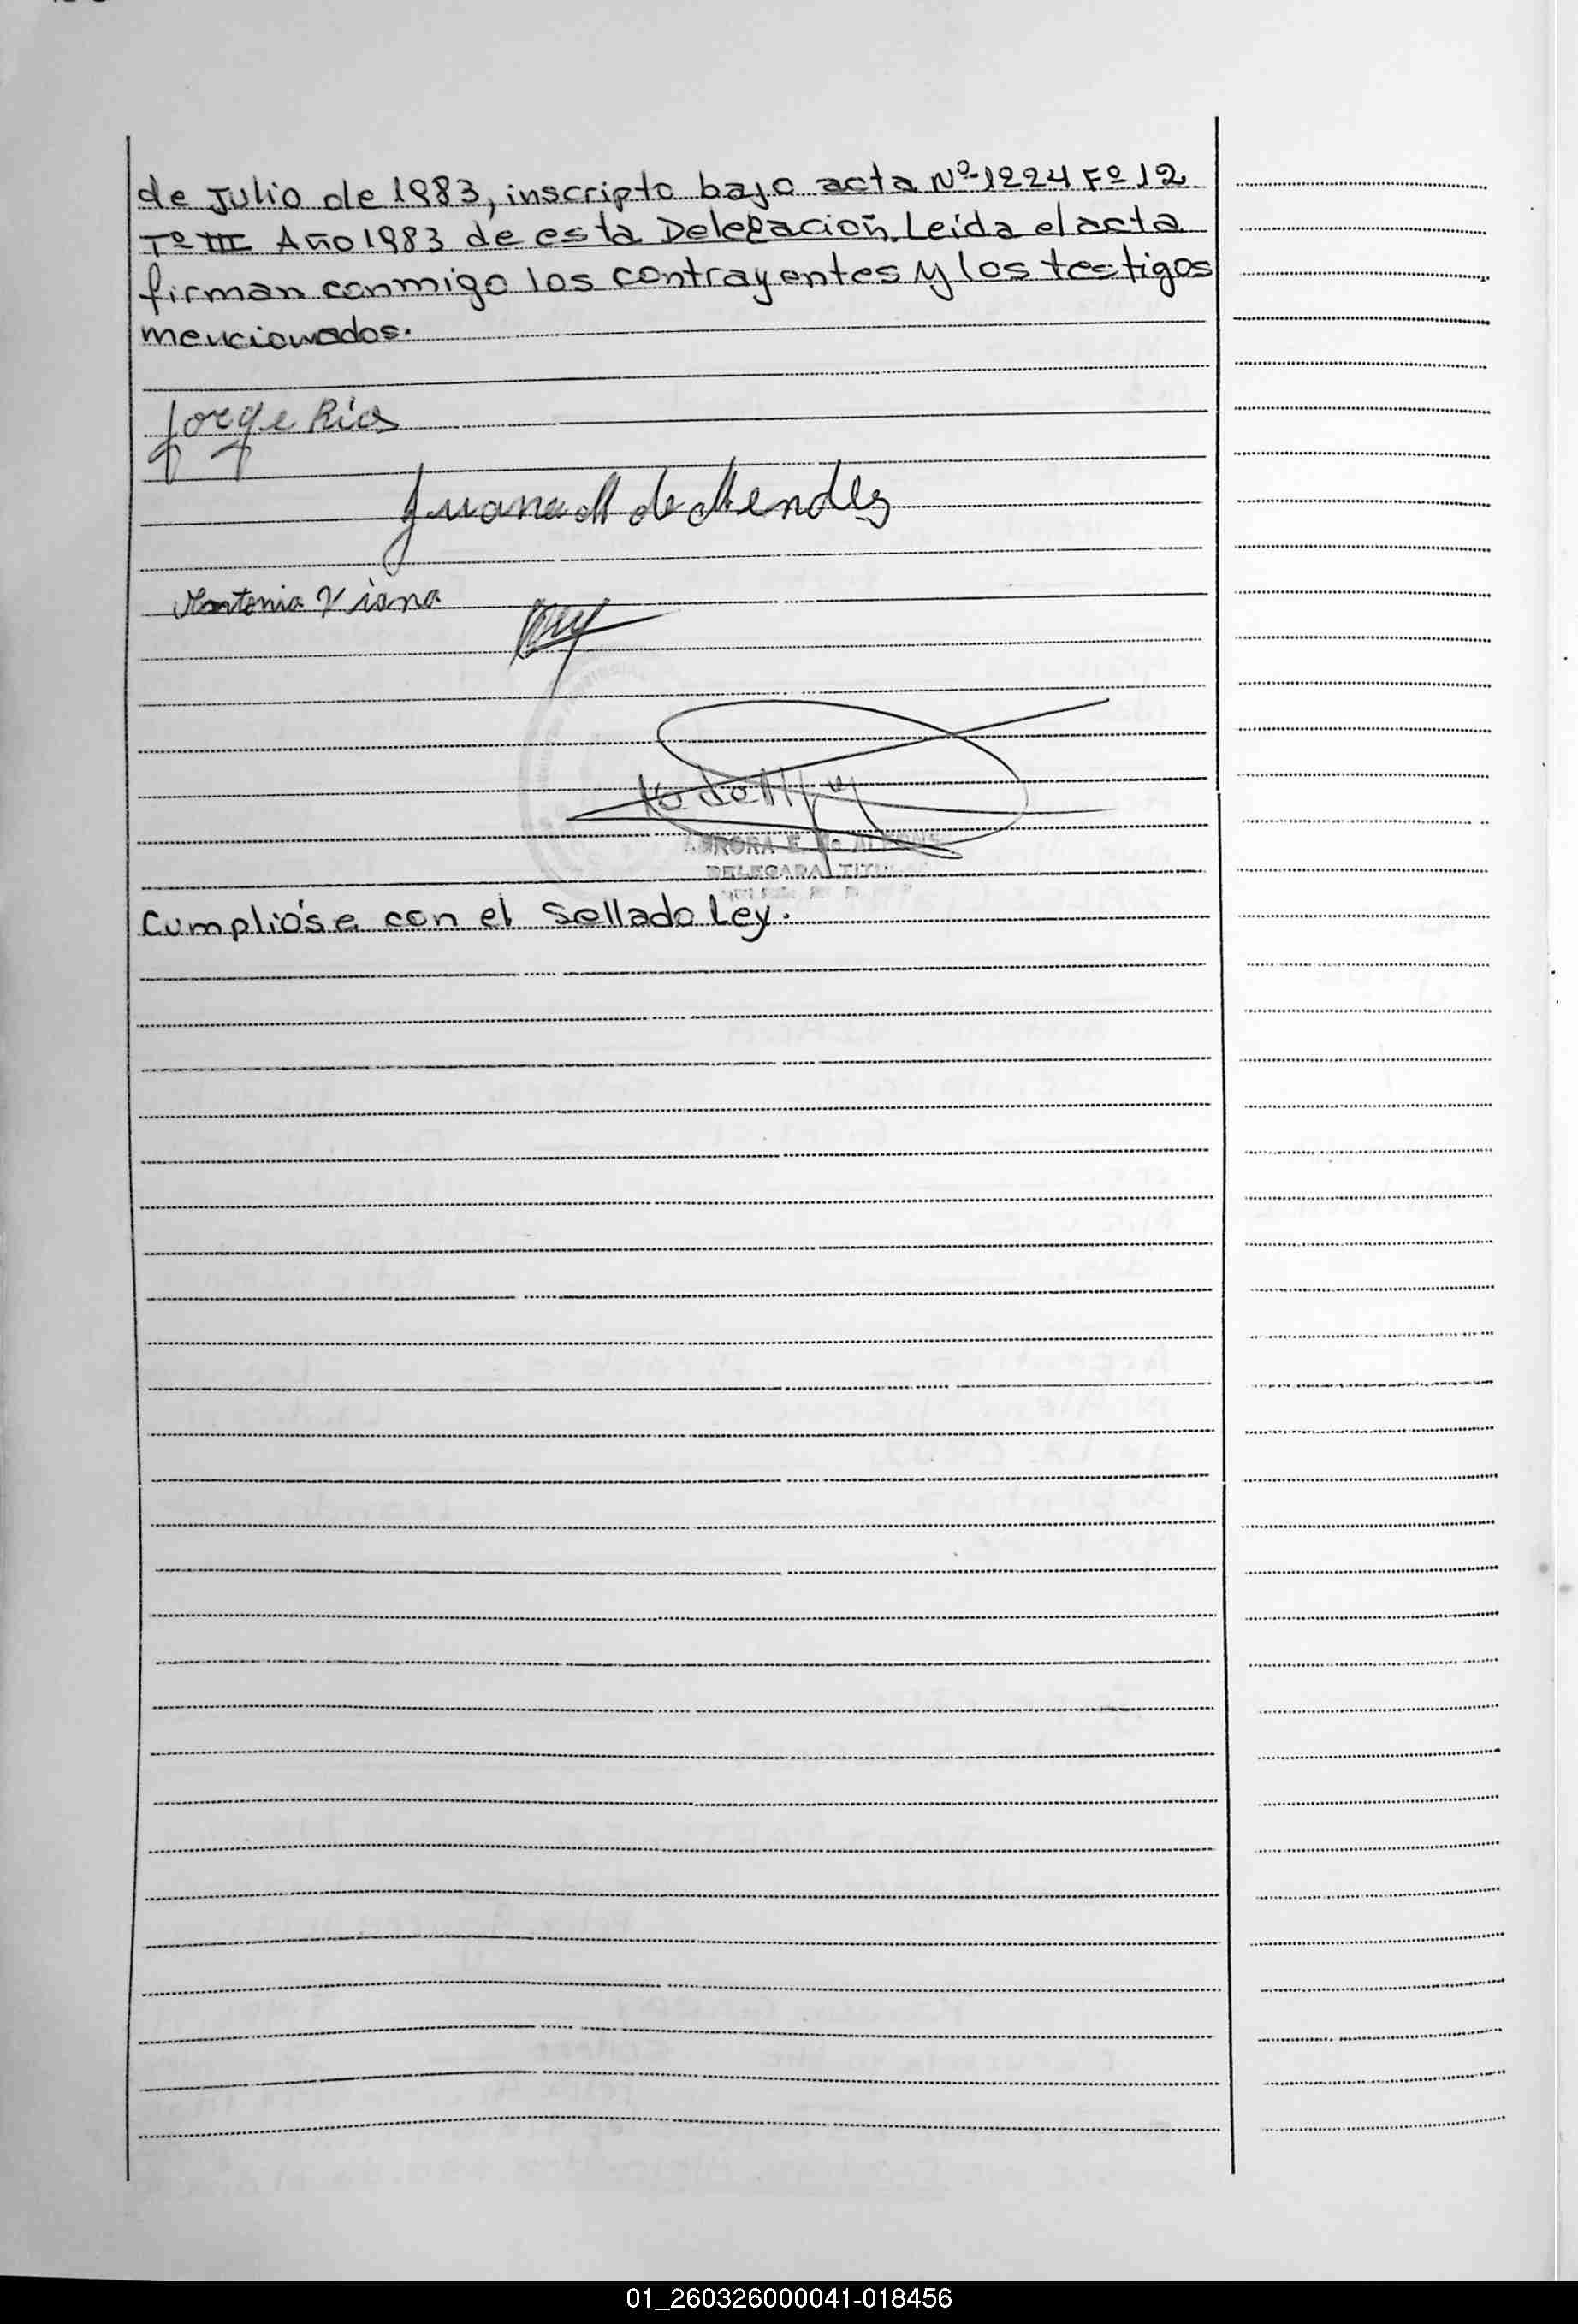 de Julio de 1983, inscripto bajo acta Nº 1224 Fº 12
Tº III Año 1983 de esta Delegación. Leída el acta
firman conmigo los contrayentes y los testigos
mencionados.
Jorge Rios
Juana M de Mendez
Antonia Viana
AURORA E.
DELEGADA TITULAR
Cumplióse con el Sellado Ley.
01_260326000041-018456